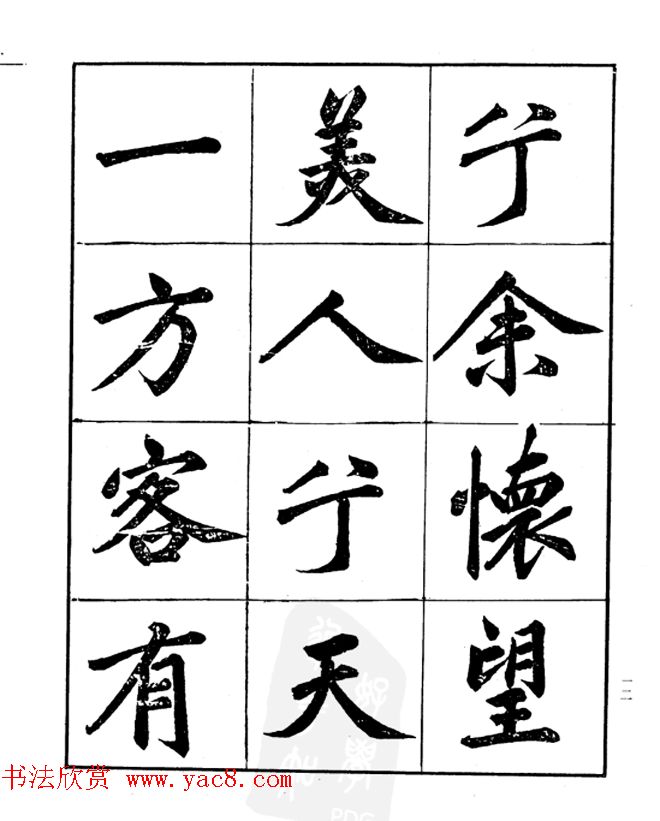 兮余懷望
美人兮天
一方客有
书法欣赏 www.yac8.com
PDG